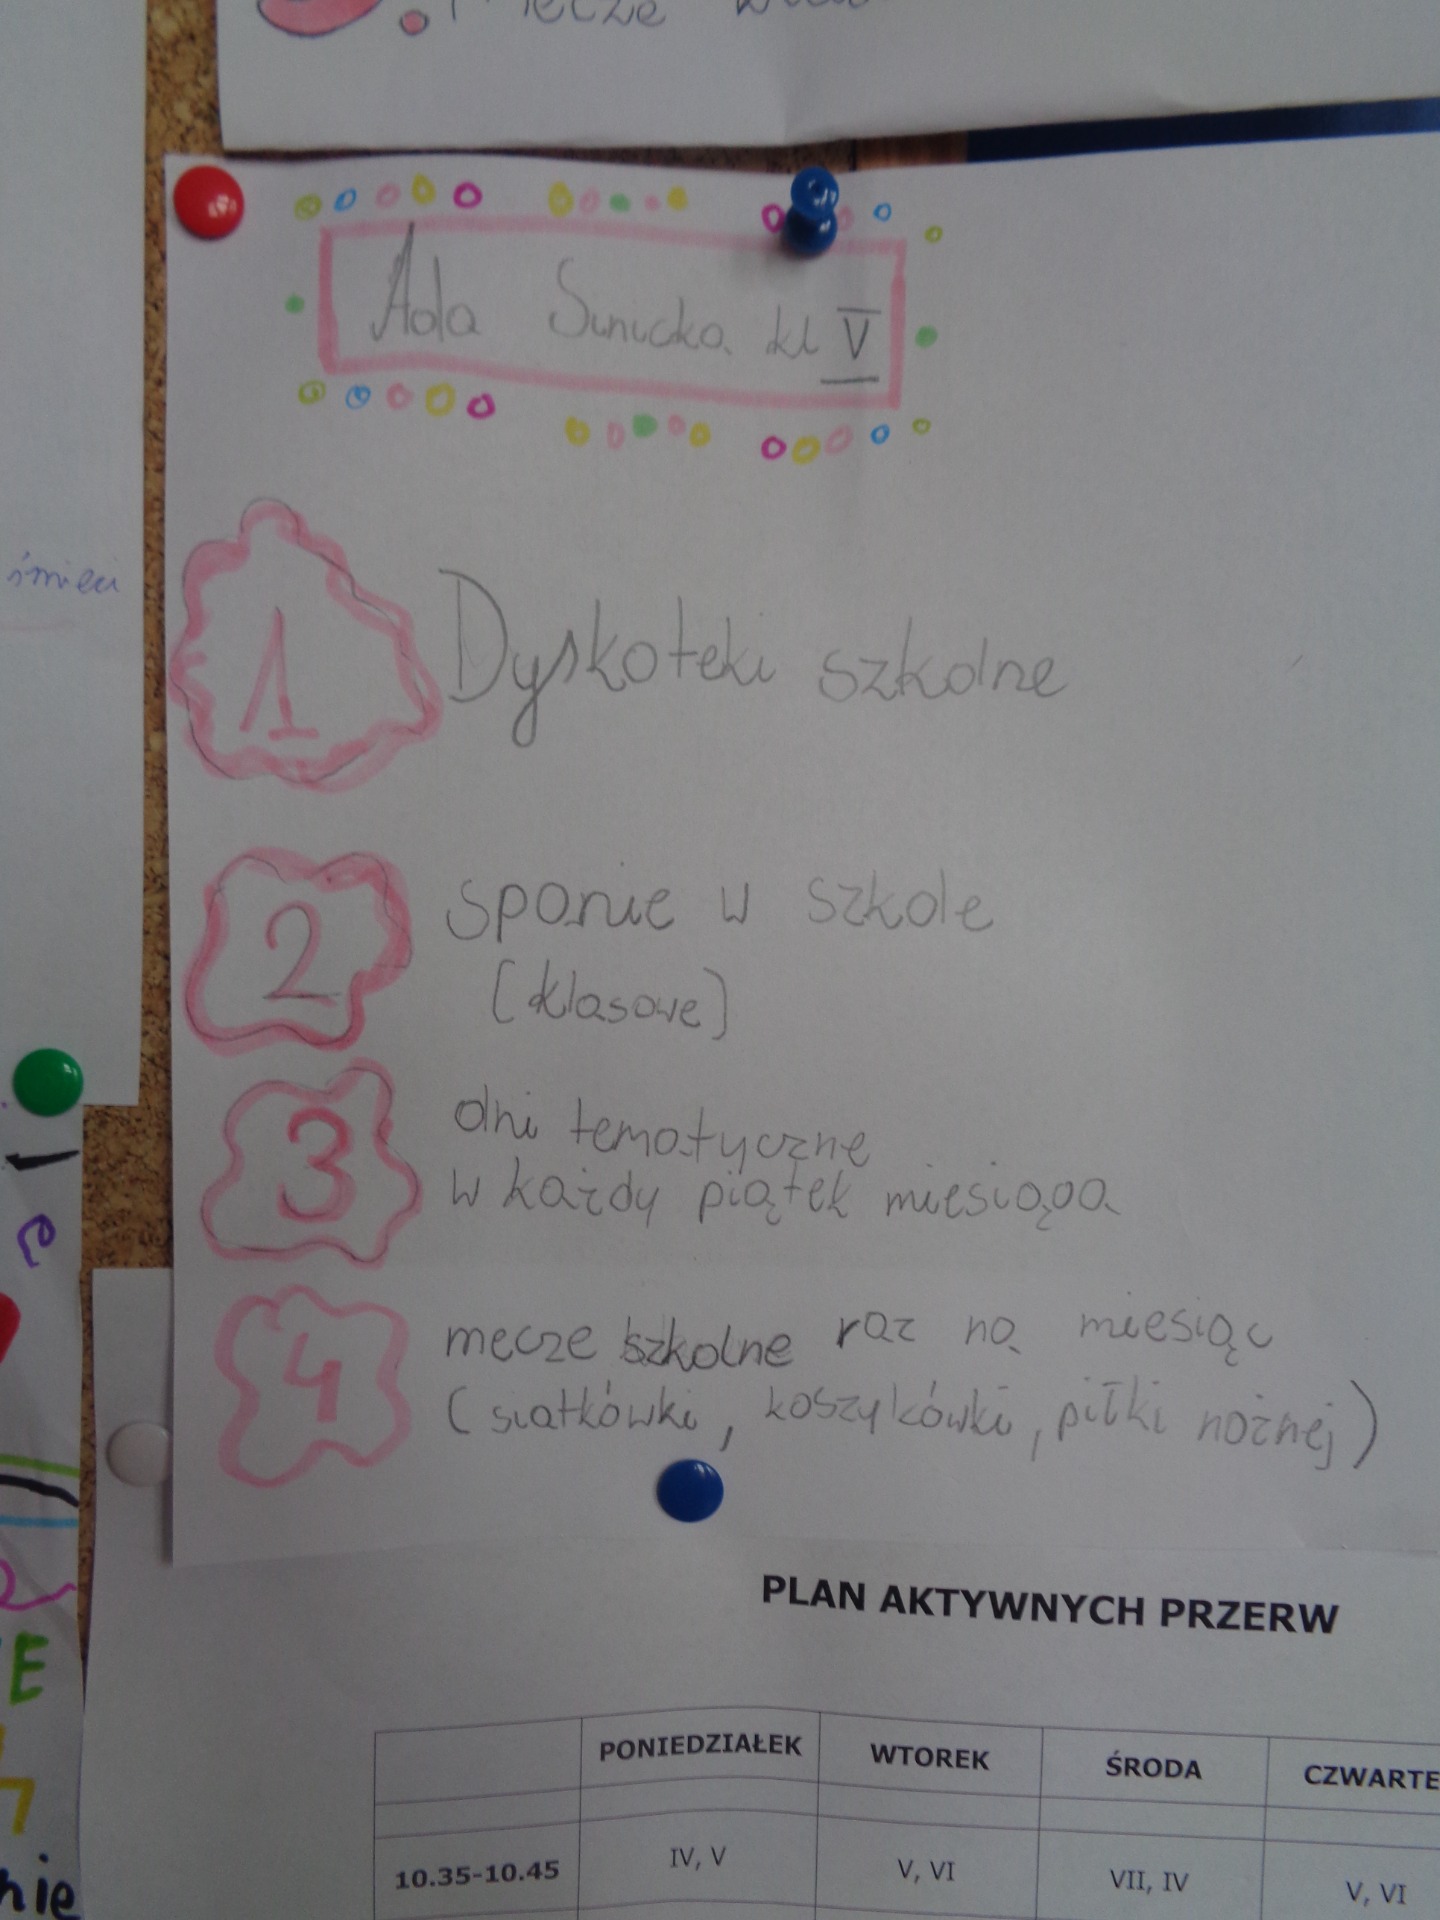 mecze
Ada Sinicka kl V
1 Dyskoteki szkolne
2 spanie w szkole
(klasowe)
3 dni tematyczne
w każdy piątek miesiąca
4 mecze szkolne raz na miesiąc
(siatkówki, koszykówki, piłki nożnej)
śmieci
E
nie
PLAN AKTYWNYCH PRZERW
PONIEDZIAŁEK WTOREK ŚRODA CZWARTE
10.35-10.45 IV, V V, VI VII, IV V, VI